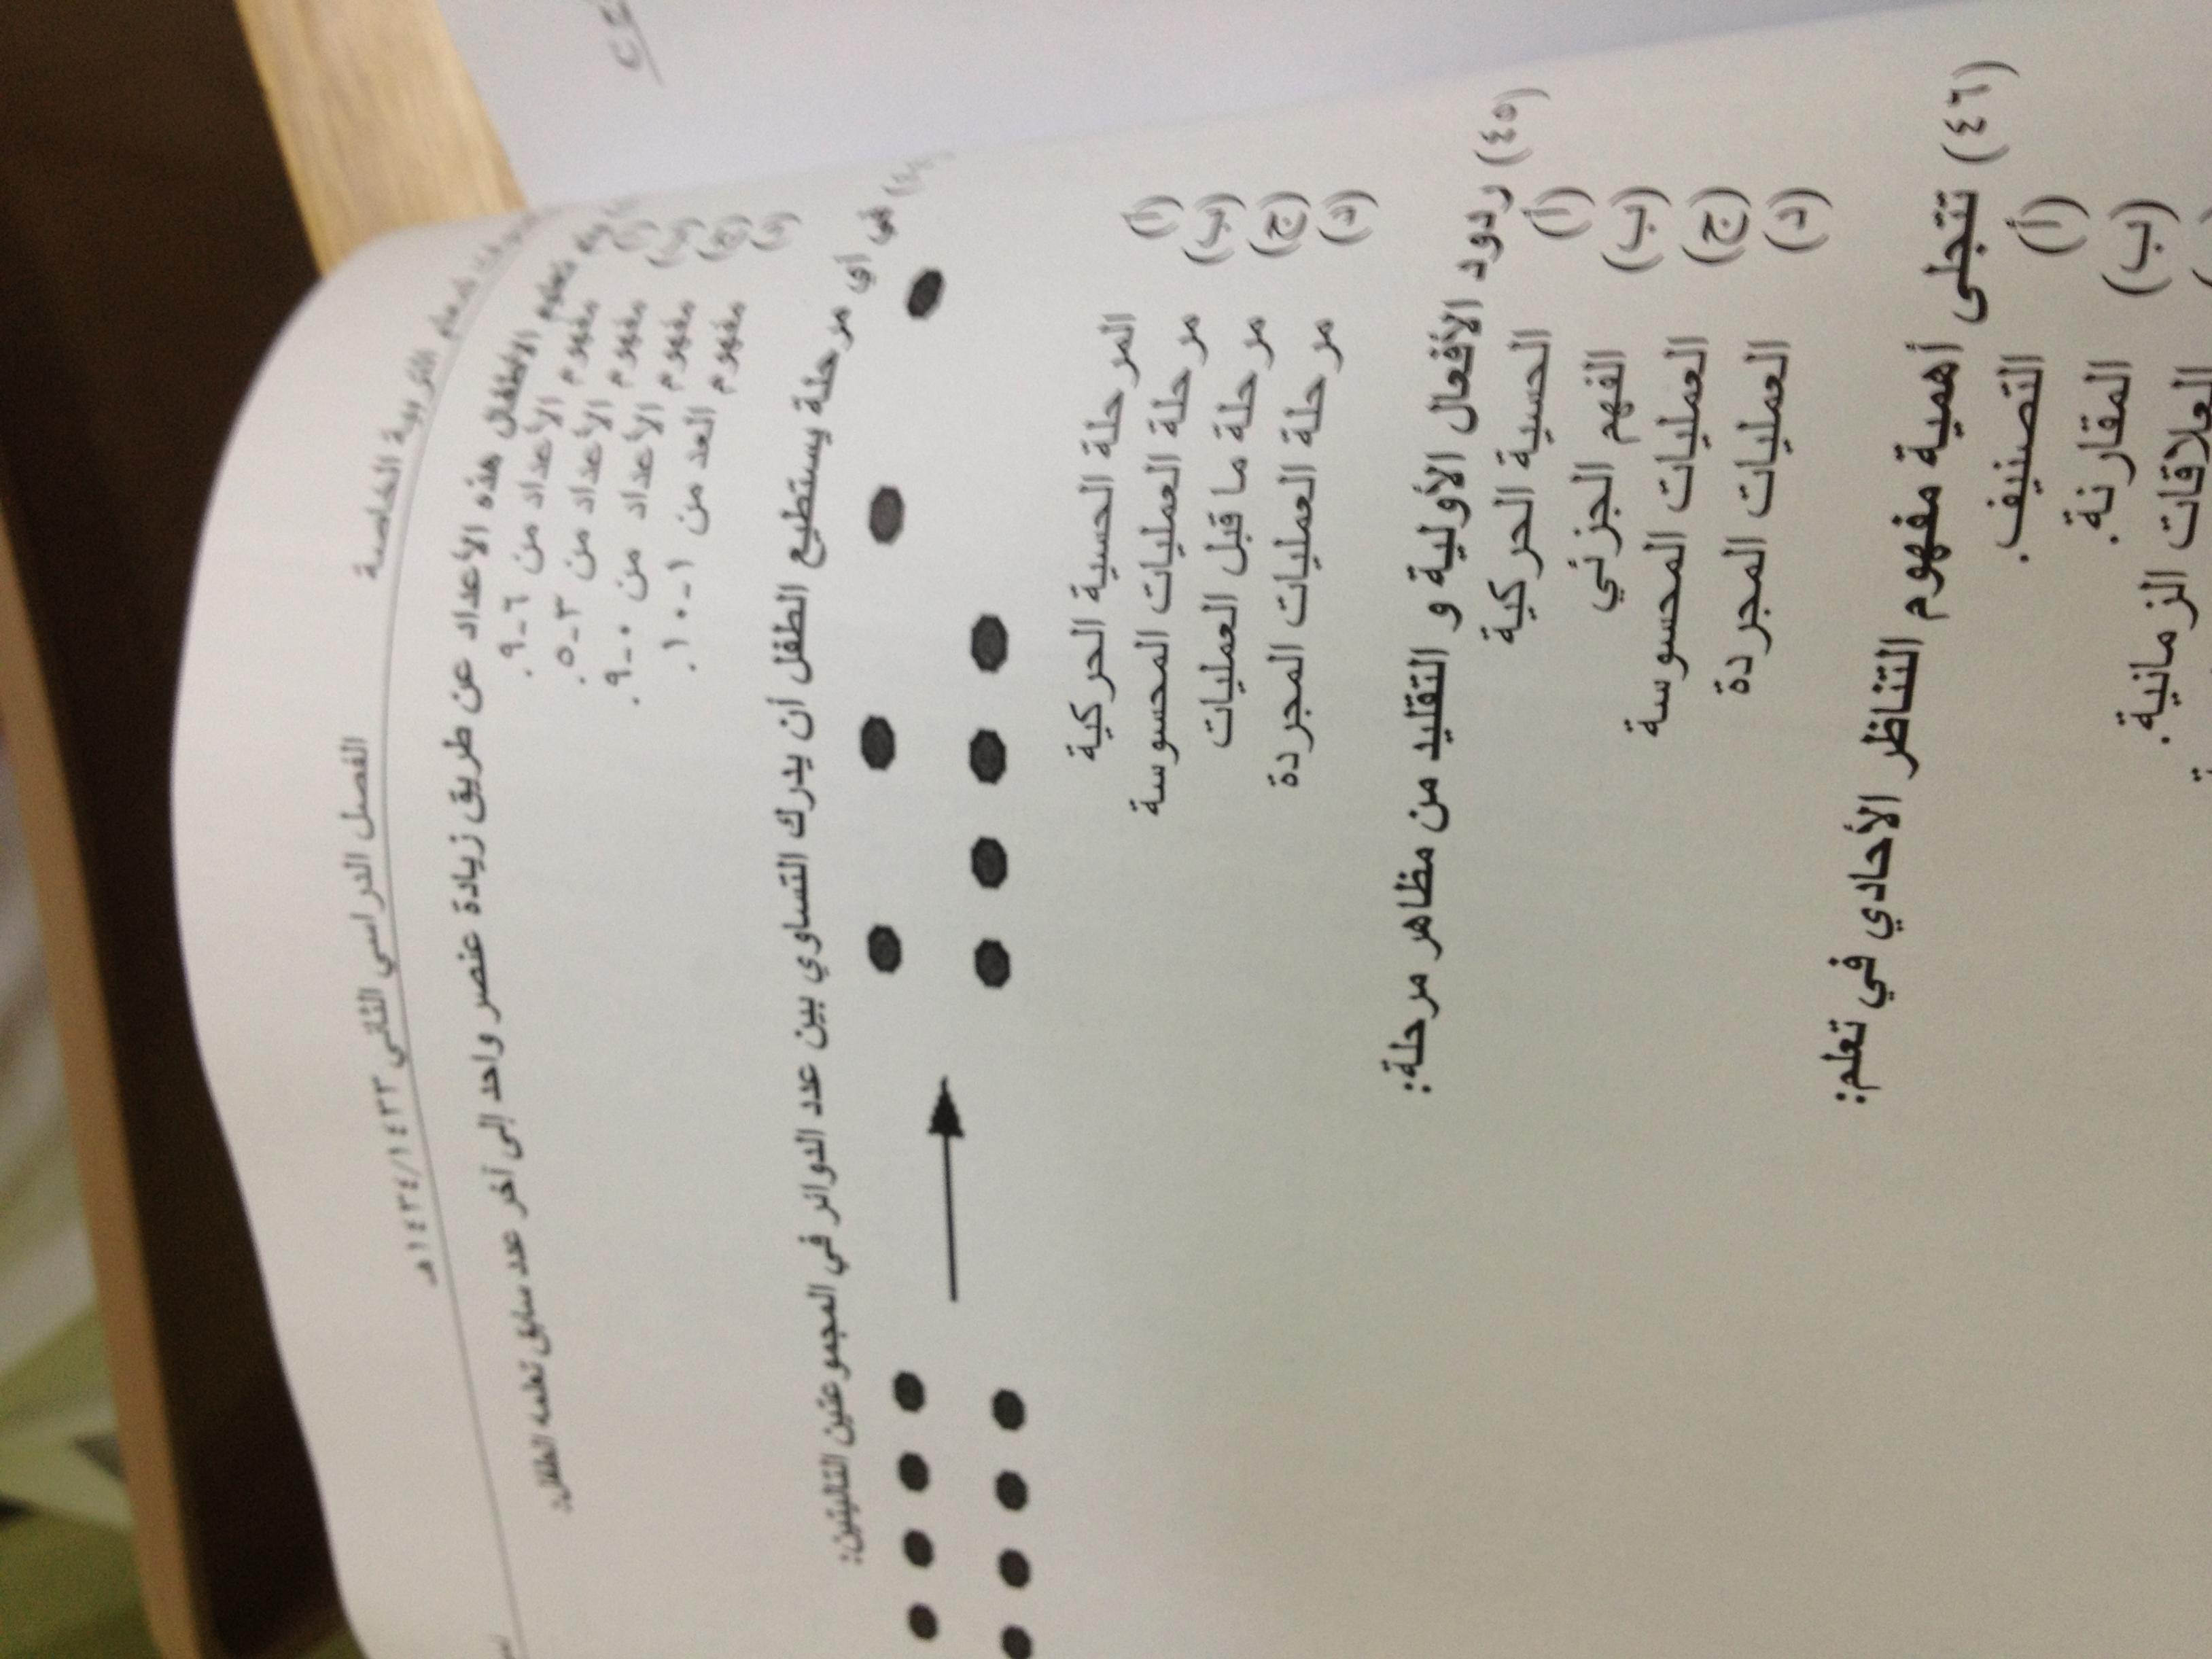 معلم التربية الخاصة الفصل الدراسي الثاني ١٤٣٤/١٤٣٣هـ
تعليم الأطفال هذه الأعداد عن طريق زيادة عنصر واحد إلى آخر عدد سابق تعلمه الطفل:
مفهوم الأعداد من ٦-٩.
مفهوم الأعداد من ٣-٥.
مفهوم الأعداد من ٠-٩.
مفهوم العدد من ١-١٠.
في أي مرحلة يستطيع الطفل أن يدرك التساوي بين عدد الدوائر في المجموعتين التاليتين:
(أ) المرحلة الحسية الحركية
(ب) مرحلة العمليات المحسوسة
(ج) مرحلة ما قبل العمليات
(د) مرحلة العمليات المجردة
(٤٥) ردود الأفعال الأولية و التقليد من مظاهر مرحلة:
(أ) الحسية الحركية
(ب) الفهم الجزئي
(ج) العمليات المحسوسة
(د) العمليات المجردة
(٤٦) تتجلى أهمية مفهوم التناظر الأحادي في تعلم:
(أ) التصنيف.
(ب) المقارنة.
العلاقات الزمانية.